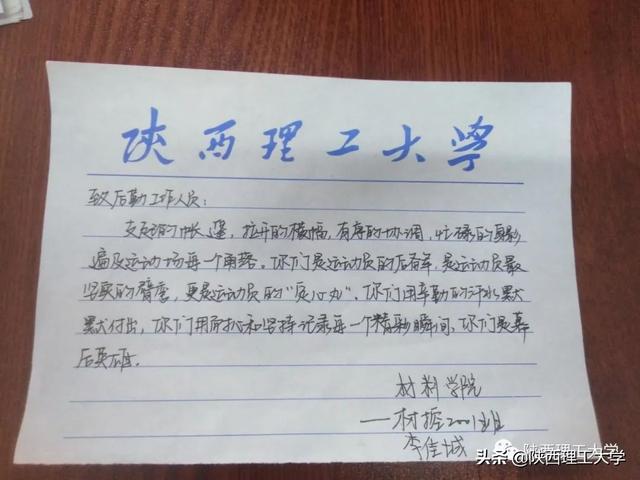 陕西理工大学
致后勤工作人员：
支起的帐篷，拉开的横幅，有序的协调，忙碌的身影
遍及运动场每一个角落。你们是运动员的后备军，是运动员最
坚实的臂膀，更是运动员的“定心丸”。你们用辛勤的汗水默
默付出，你们用耐心和坚持记录每一个精彩瞬间，你们是幕
后英雄。
材料学院
——材控2001班
李佳城
陕西理工大学
头条@陕西理工大学